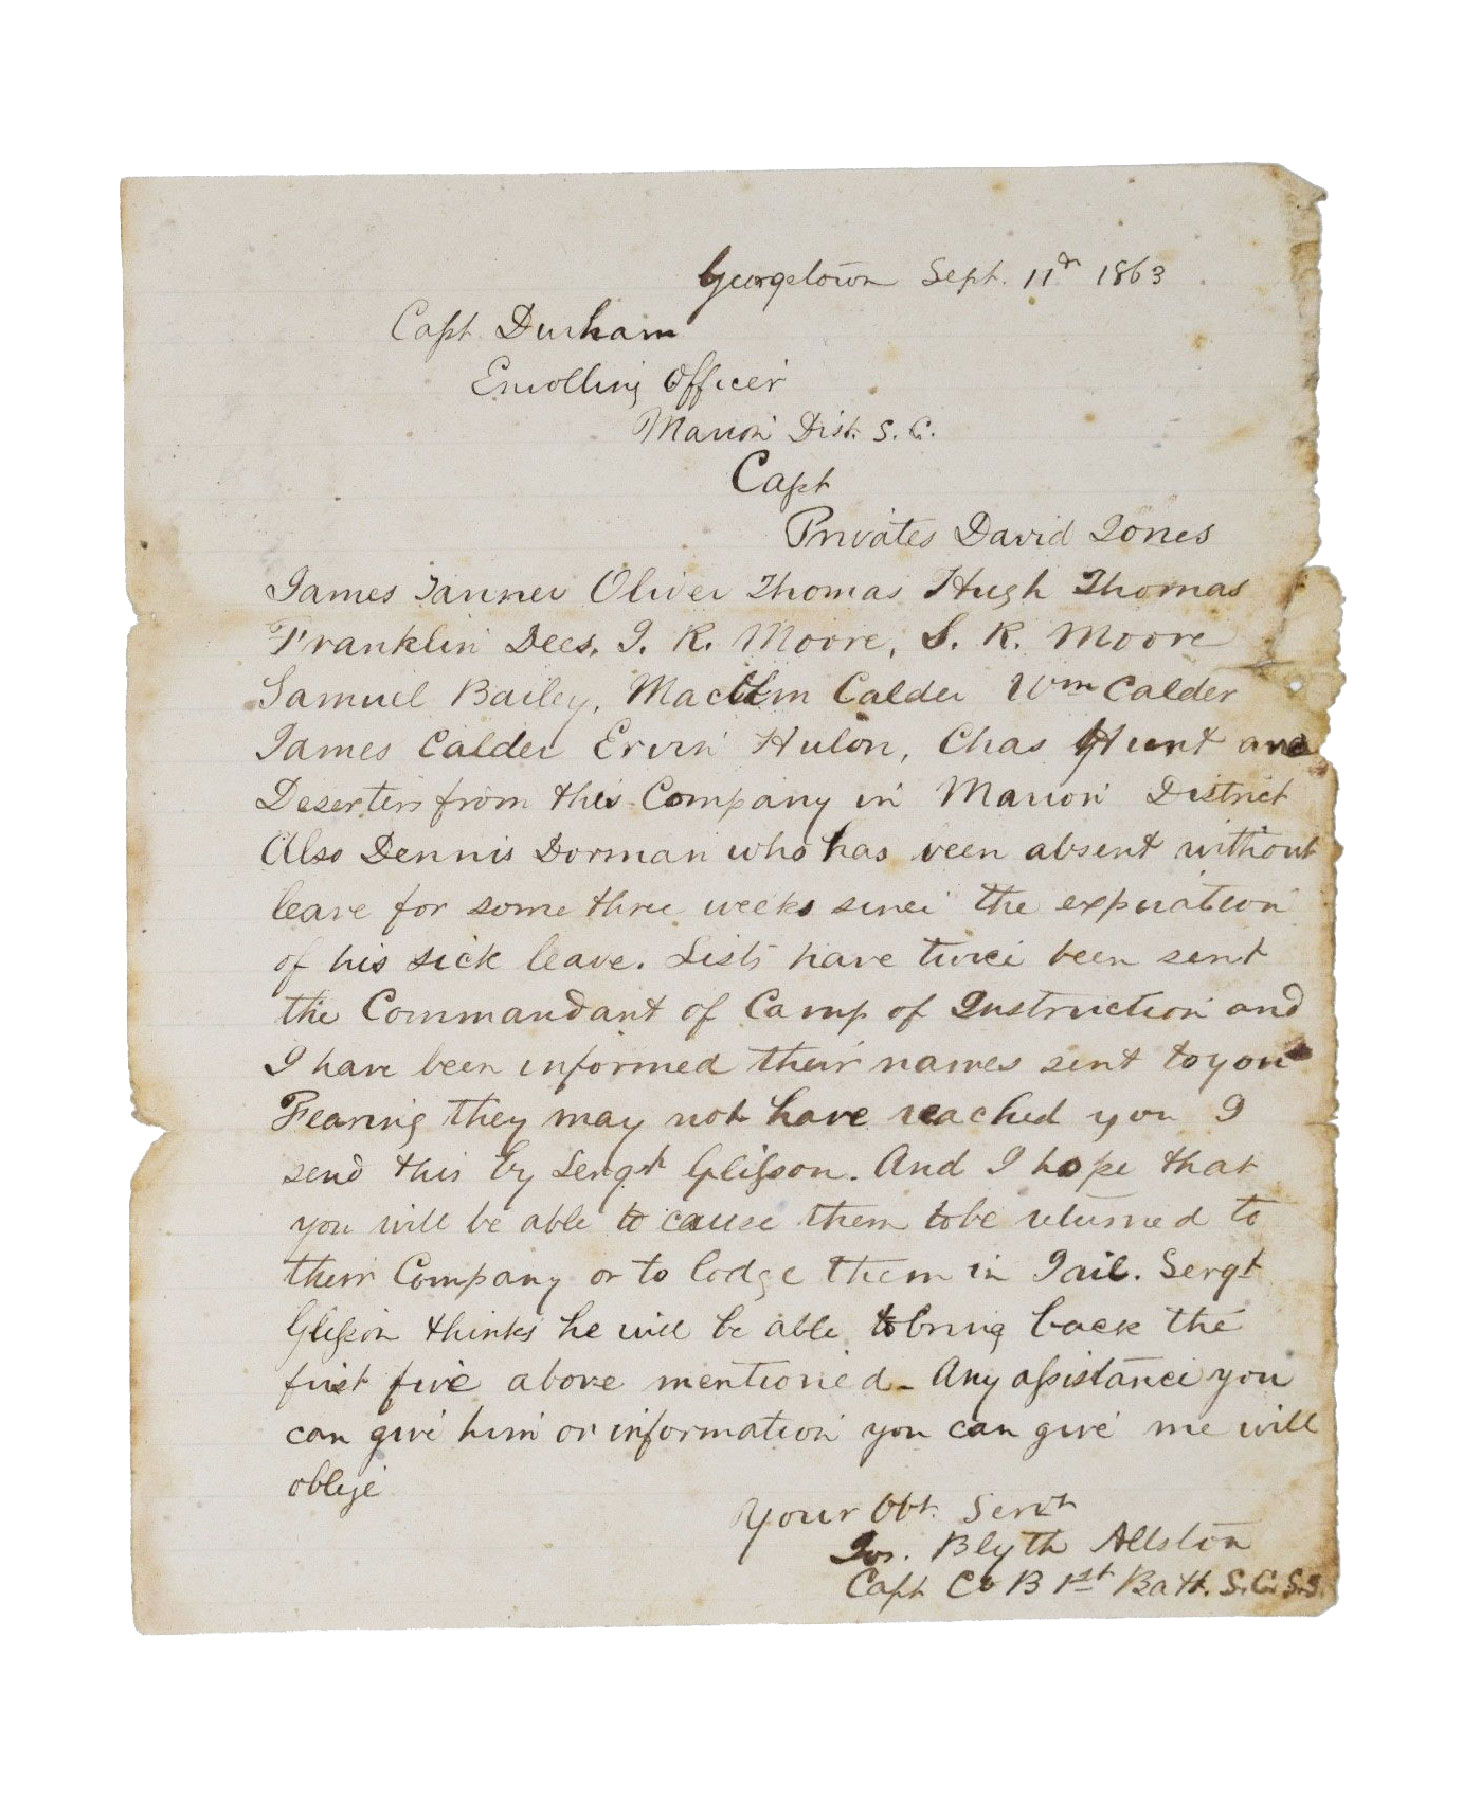 Georgetown Sept. 11th 1863
Capt Durham
Enrolling Officer
Marion Dist. S. C.
Capt
Privates David Jones
James Tanner Oliver Thomas Hugh Thomas
Franklin Dees, J. R. Moore, S. R. Moore
Samuel Bailey, Calder Wm Calder
James Calder Ervin Hulon, Chas Hunt are
Deserters from this Company in Marion District
Also Dennis Dorman who has been absent without
leave for some three weeks since the expiration
of his sick leave. Lists have twice been sent
the Commandant of Camp of Instruction and
I have been informed their names sent to you
Fearing they may not have reached you I
send this by Sergt Glisson. And I hope that
you will be able to cause them to be returned to
their Company or to lodge them in Jail. Sergt
Glisson thinks he will be able to bring back the
first five above mentioned - Any assistance you
can give him or information you can give me will
oblige
Your Obt. Servt
Jos. Blyth Allston
Capt Co B 1st Batt. S.C.S.S.